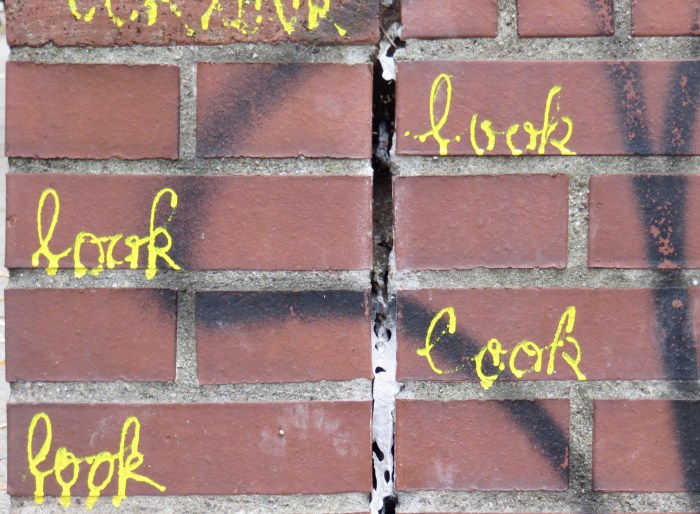 look
look
look
look